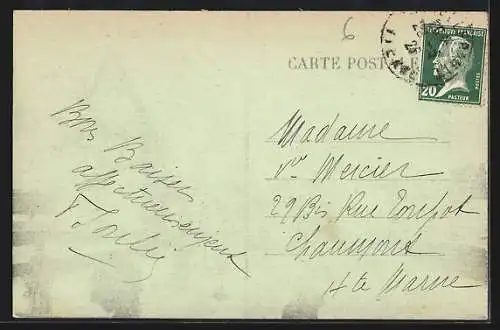 6
CARTE POSTALE
REPUBLIQUE FRANÇAISE
20
POSTES
PASTEUR
Bons Baisers
affectueusement
Madame
Vve Mercier
29 Bis Rue
Chaumont
Hte Marne